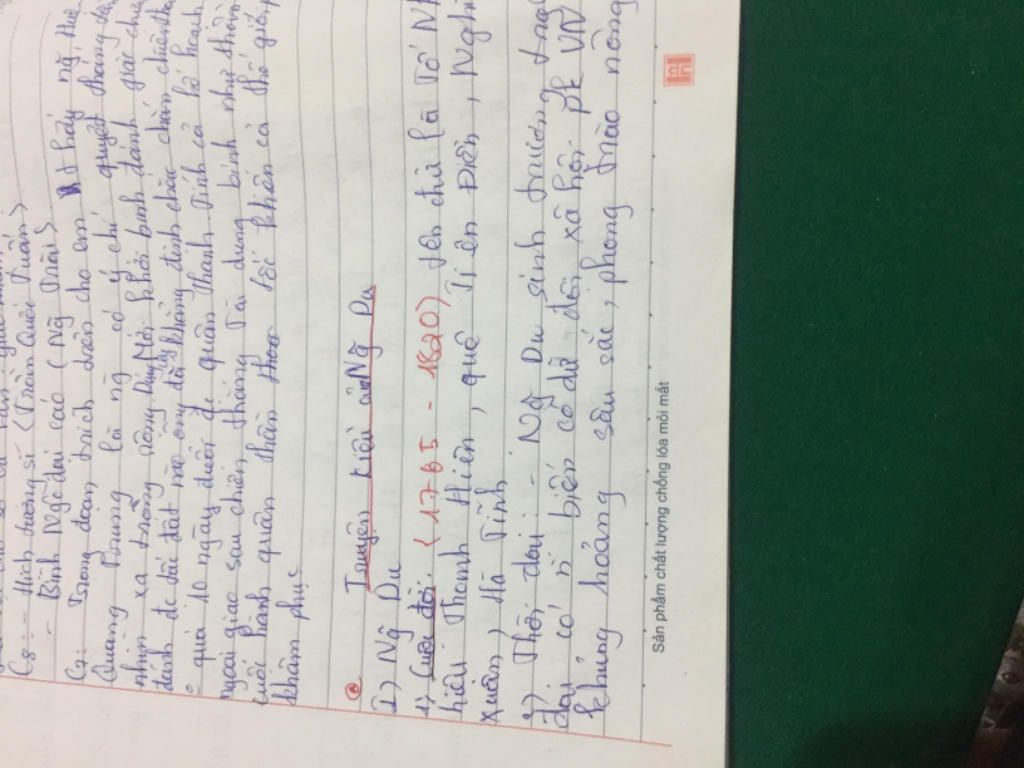 C8: - Hịch tướng sĩ (Trần Quốc Tuấn)
- Bình Ngô đại cáo (Ng Trãi)
C9: Trong đoạn trích trên cho em thấy ng Huệ
Quang Trung là ng có ý chí quyết thắng
nhìn xa trông rộng. Mới khởi binh đánh giặc
đánh đc tấc đất nào ông đã khẳng định chắc chắn chiến
qua 10 ngày đuổi đc quân Thanh. Tính cả kế hoạch
ngoại giao sau chiến thắng. Tài dụng binh như thần
cuộc hành quân thần tốc khiến cả thế giới
khâm phục
Truyện Kiều của Ng Du
I) Ng Du
1) Cuộc đời: (1765 - 1820) tên chữ là Tố Nh
hiệu Thanh Hiên, quê Tiên Điền, Nghi
Xuân, Hà Tĩnh
2) Thời đại: - Ng Du sinh trưởng trong
đại có n biến cố dữ dội, xã hội pk VN
khủng hoảng sâu sắc, phong trào nông
Sản phẩm chất lượng chống lóa mỏi mắt